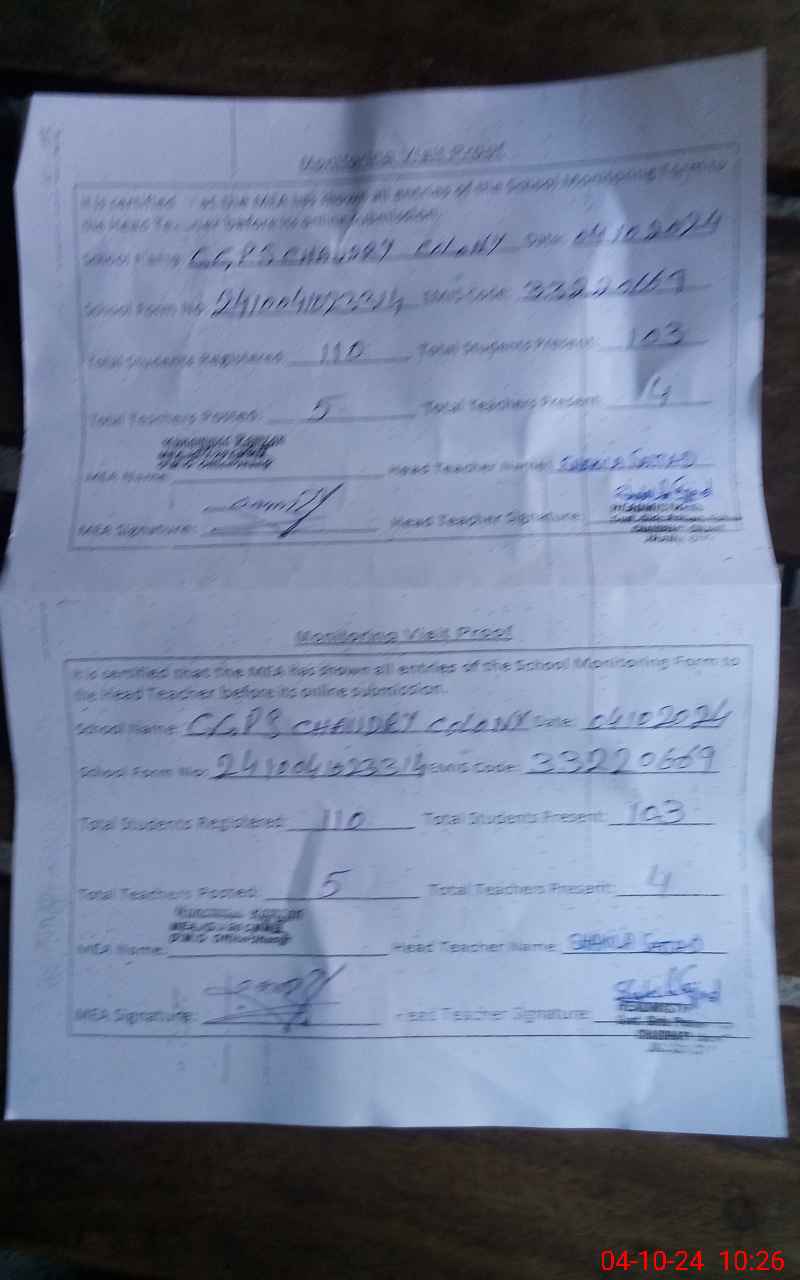 Monitoring Visit Proof
It is certified that the MEA has shown all entries of the School Monitoring Form to
the Head Teacher before its online submission.
School Name: GGPS CHAUDRY COLONY Date: 04102024
School Form No: EMIS Code:
Total Students Registered: 110 Total Students Present: 103
Total Teachers Posted: 5 Total Teachers Present: 4
MEA Name: Head Teacher Name: SHAKILA
MEA Signature: Head Teacher Signature:
Monitoring Visit Proof
It is certified that the MEA has shown all entries of the School Monitoring Form to
the Head Teacher before its online submission.
School Name: GGPS CHAUDRY COLONY Date: 04102024
School Form No: EMIS Code: 33220669
Total Students Registered: 110 Total Students Present: 103
Total Teachers Posted: 5 Total Teachers Present: 4
MEA Name: Head Teacher Name: SHAKILA
MEA Signature: Head Teacher Signature:
04-10-24 10:26